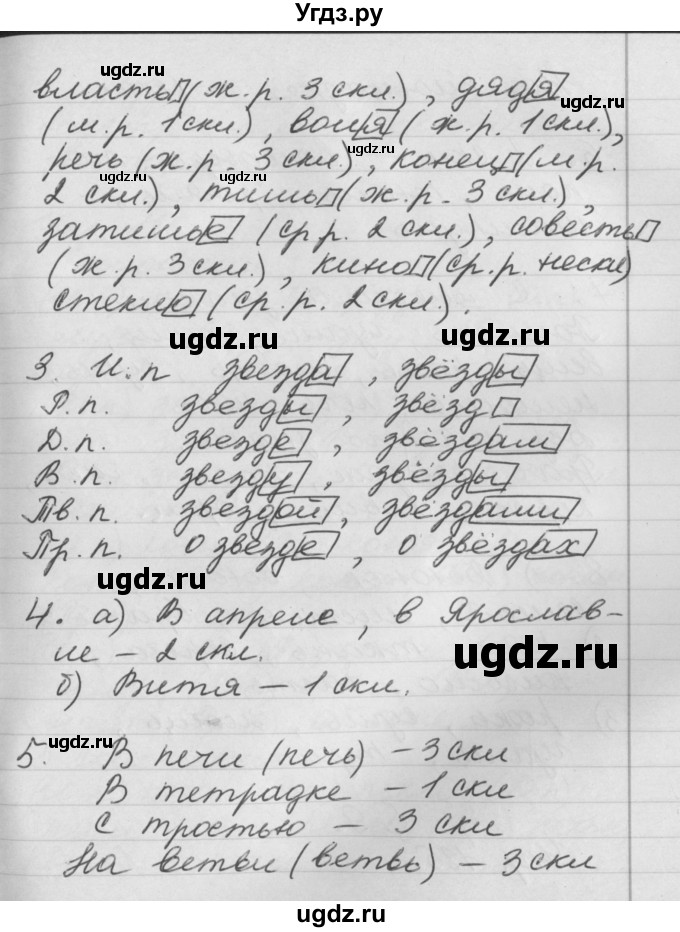 Угдз.ру
власть (ж.р. 3 скл.), дядя
(м.р. 1 скл.), воля (ж.р. 1 скл.),
речь (ж.р. 3 скл.), конец (м.р.
2 скл.), тишь (ж.р. 3 скл.),
затишье (ср.р. 2 скл.), совесть
(ж.р. 3 скл.), кино (ср.р. нескл)
стекло (ср.р. 2 скл.).
3. И.п звезда, звёзды
Р.п. звезды, звёзд
Д.п. звезде, звёздам
В.п. звезду, звёзды
Тв.п. звездой, звёздами
Пр.п. о звезде, о звёздах
4. а) В апреле, в Ярослав-
ле – 2 скл.
б) Витя – 1 скл.
5. В печи (печь) – 3 скл
В тетрадке – 1 скл
С тростью – 3 скл
На ветви (ветвь) – 3 скл
ugdz.ru
ugdz.ru
ugdz.ru
ugdz.ru
ugdz.ru
ugdz.ru
ugdz.ru
ugdz.ru
ugdz.ru